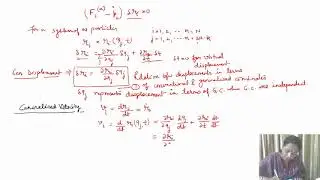 (Fᵢ⁽ᵃ⁾ - ṗᵢ) δrᵢ = 0
For a system of n particles i = 1, 2, ... n
rᵢ = rᵢ (qⱼ, t) j = 1, 2,
δrᵢ = ∂rᵢ/∂qⱼ δqⱼ + ∂rᵢ/∂t δt δt = 0 for virtual displacement
Gen Displacement → δrᵢ = ∂rᵢ/∂qⱼ δqⱼ Relation of displacements in terms of conventional and generalised coordinates
δqⱼ represents displacement in terms of G.C. when G.C. are independent
Generalised Velocity vᵢ = drᵢ/dt = ṙᵢ
vᵢ = d/dt rᵢ(qⱼ, t) = ∂rᵢ/∂qⱼ dqⱼ/dt + ∂rᵢ/∂t dt/dt
= ∂rᵢ/∂